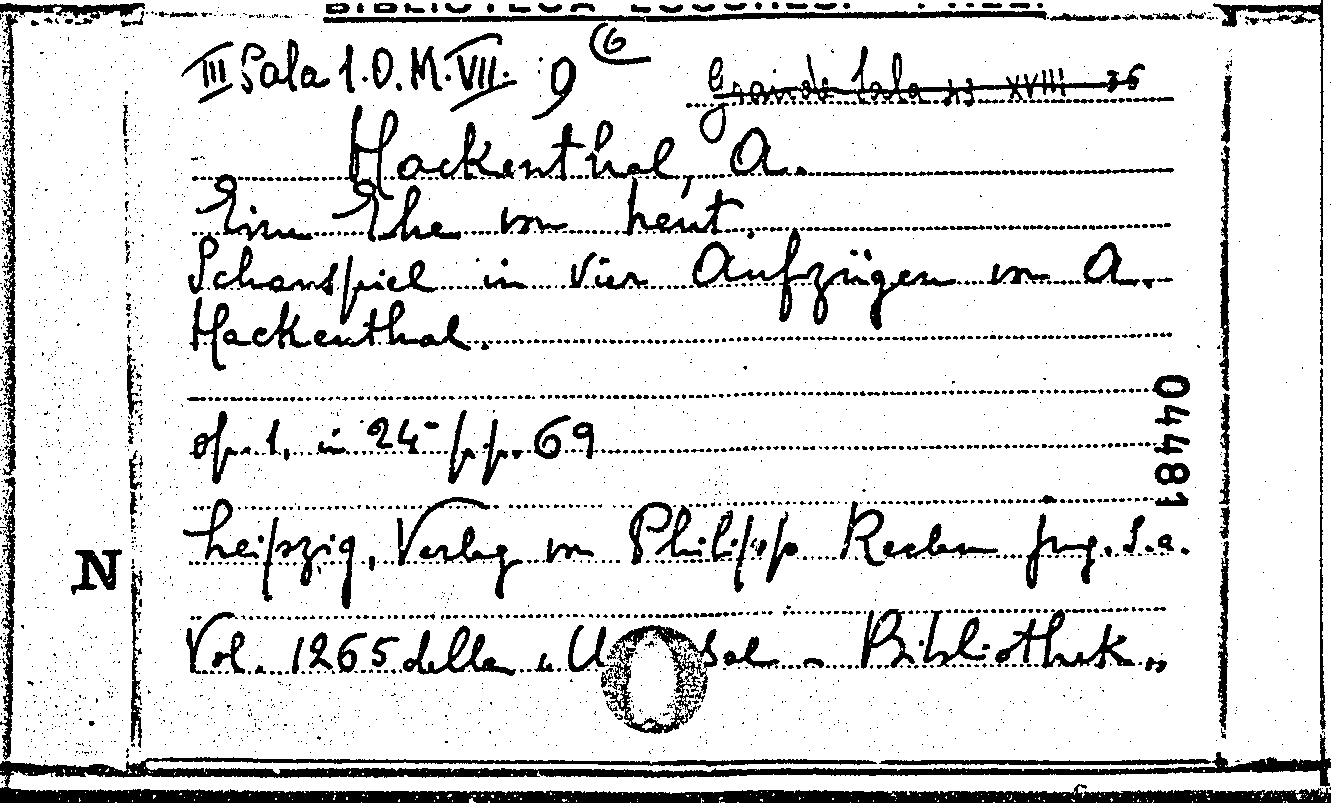 III Sala 1.O.M.VII. 9 (6
Grande Sala 23 XVIII 36
Hackenthal, A.
Eine Ehe von heut.
Schauspiel in vier Aufzügen von A.
Hackenthal.
op. 1, in 24° pp. 69
04481
Leipzig, Verlag von Philipp Reclam jung. S.a.
N
Vol. 1265 della „U sal - Bibliothek„